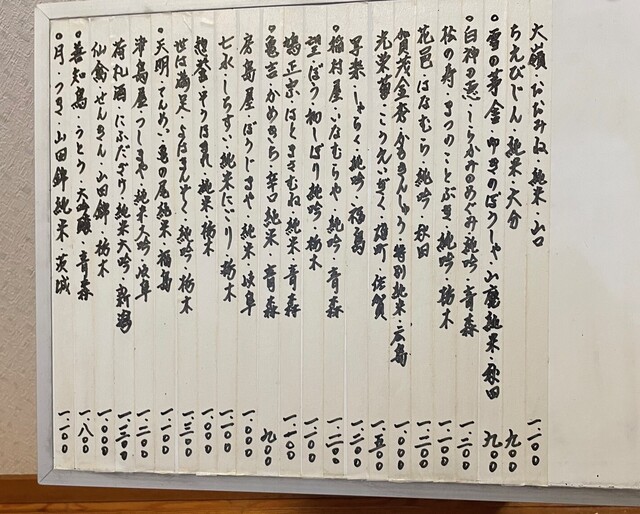 大嶺・おおみね・純米・山口 一.二〇〇
ちえびじん・純米・大分 九〇〇
雪の茅舎・ゆきのぼうしゃ・山廃純米・秋田 九〇〇
白神の・しらかみのめぐみ・純吟・青森 一.二〇〇
松の寿・まつのことぶき・純吟・栃木 一.一〇〇
花邑・はなむら・純吟・秋田 一.二〇〇
賀茂金秀・かもきんしゅう・特別純米・広島 一.〇〇〇
光栄菊・こうえいぎく・雄町・佐賀 一.五〇〇
写楽・しゃらく・純吟・福島 一.二〇〇
稲村屋・いなむらや・純米・青森 一.二〇〇
望・ぼう・初しぼり純吟・栃木 一.二〇〇
鳩正宗・はとまさむね・純米・青森 一.一〇〇
亀吉・かめきち・辛口純米・青森 九〇〇
房島屋・ぼうじまや・純米・岐阜 一.〇〇〇
七水・しちすい・純米にごり・栃木 一.一〇〇
惣誉・そうほまれ・純米・栃木 一.〇〇〇
・純吟・栃木 一.三〇〇
天明・てんめい・亀の尾純米・福島 一.二〇〇
津島屋・つしまや・純米大吟・岐阜 一.二〇〇
荷札酒・にふだざけ・純米大吟・新潟 一.三〇〇
仙禽・せんきん・山田錦・栃木 一.〇〇〇
善知鳥・うとう・大吟醸・青森 一.八〇〇
月・つき・山田錦純米・茨城 一.一〇〇